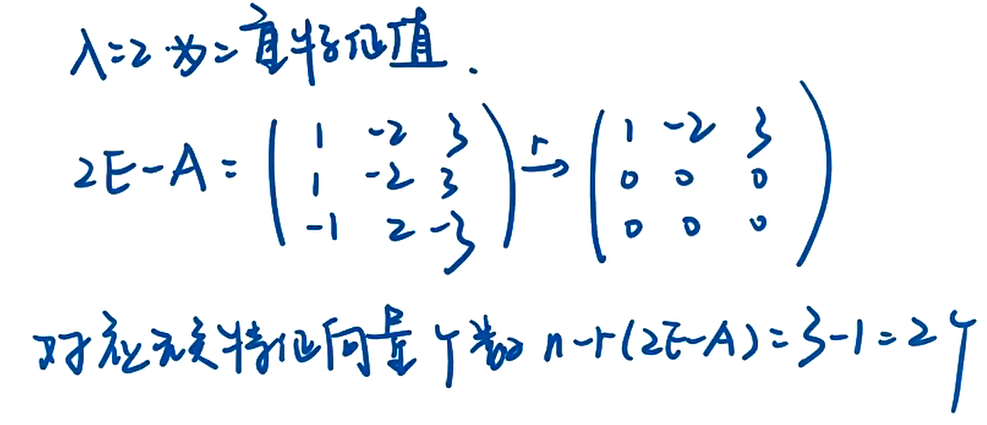 λ=2为二重特征值.
2E-A= ( 1 -2 3 ) r→ ( 1 -2 3 )
( 1 -2 3 ) ( 0 0 0 )
( -1 2 -3 ) ( 0 0 0 )
对应无关特征向量个数为 n-r(2E-A)=3-1=2个